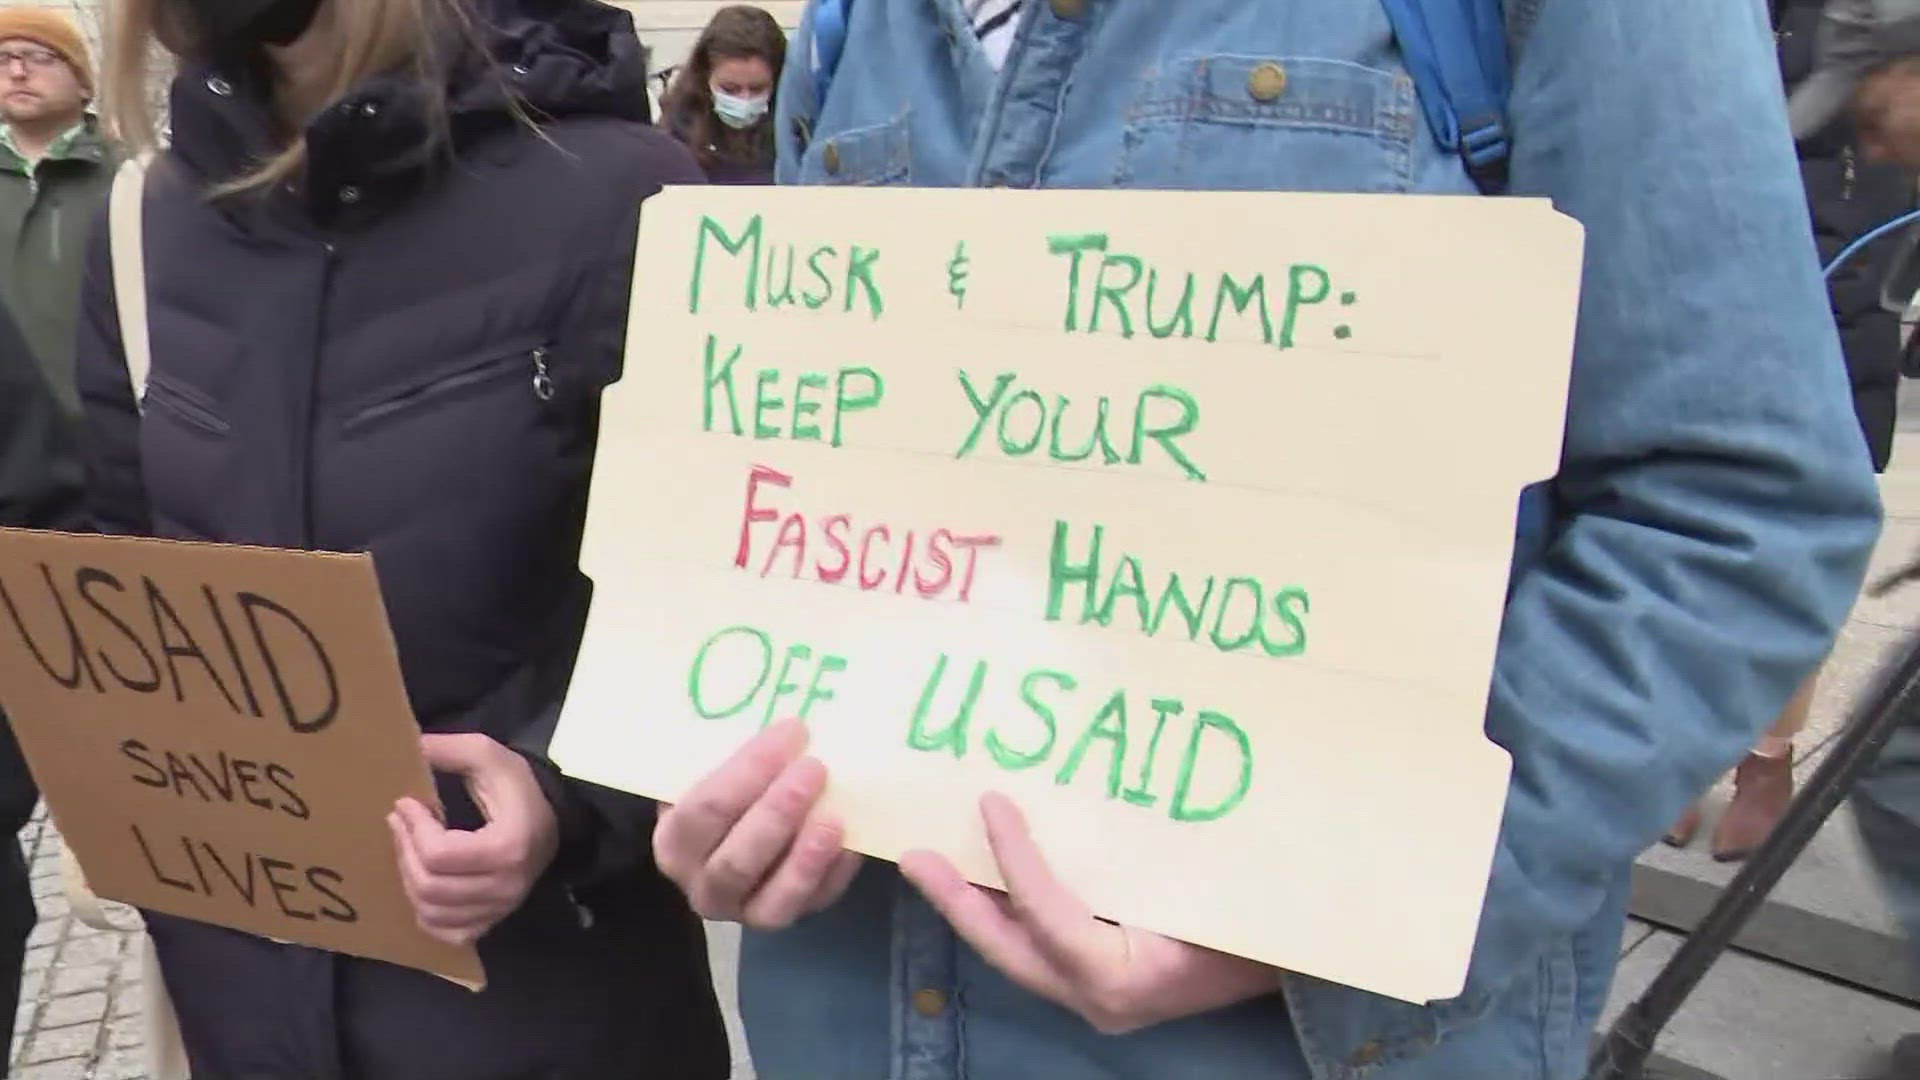 MUSK & TRUMP:
KEEP YOUR
FASCIST HANDS
OFF USAID
USAID
SAVES
LIVES